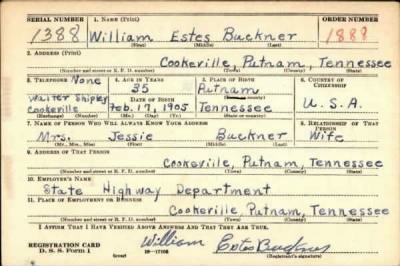 SERIAL NUMBER 1. NAME (Print) ORDER NUMBER
1388 William Estes Buckner 1888
(First) (Middle) (Last)
2. ADDRESS (Print)
Cookeville, Putnam, Tennessee
(Number and street or R. F. D. number) (Town) (County) (State)
3. TELEPHONE 4. AGE IN YEARS 5. PLACE OF BIRTH 6. COUNTRY OF CITIZENSHIP
None 35 Putnam
Walter Shipley DATE OF BIRTH
Cookeville Feb. 17, 1905 Tennessee U.S.A.
(Exchange) (Number) (Mo.) (Day) (Yr.) (State or country)
7. NAME OF PERSON WHO WILL ALWAYS KNOW YOUR ADDRESS 8. RELATIONSHIP OF THAT PERSON
Mrs. Jessie Buckner Wife
(Mr., Mrs., Miss) (First) (Middle) (Last)
9. ADDRESS OF THAT PERSON
Cookeville, Putnam, Tennessee
(Number and street or R. F. D. number) (Town) (County) (State)
10. EMPLOYER'S NAME
State Highway Department
11. PLACE OF EMPLOYMENT OR BUSINESS
Cookeville, Putnam, Tennessee
(Number and street or R. F. D. number) (Town) (County) (State)
I AFFIRM THAT I HAVE VERIFIED ABOVE ANSWERS AND THAT THEY ARE TRUE.
REGISTRATION CARD
D. S. S. Form 1 William Estes Buckner
(over) (Registrant's signature)